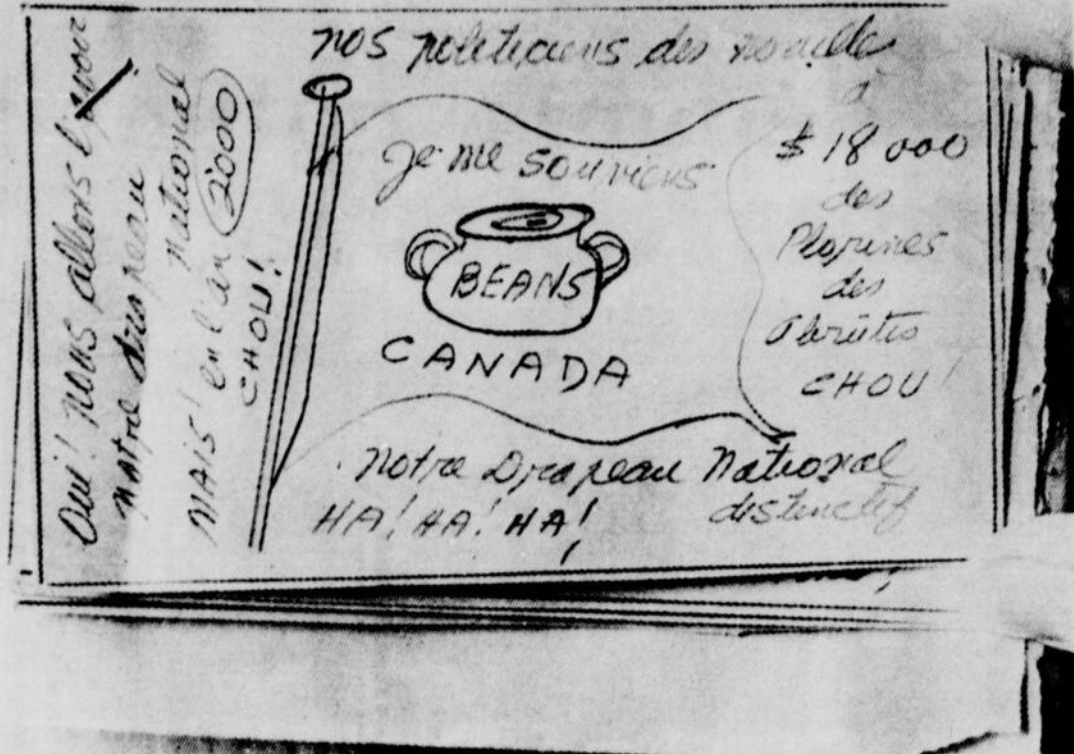 Oui! nous allons l'avoir
notre drapeau
national
MAIS! en l'an 2000
CHOU!
nos politiciens des nouille
à
$ 18 000
des
des
Abrutis
CHOU!
Je me souviens
BEANS
CANADA
Notre Drapeau National
distinctif
HA! HA! HA!